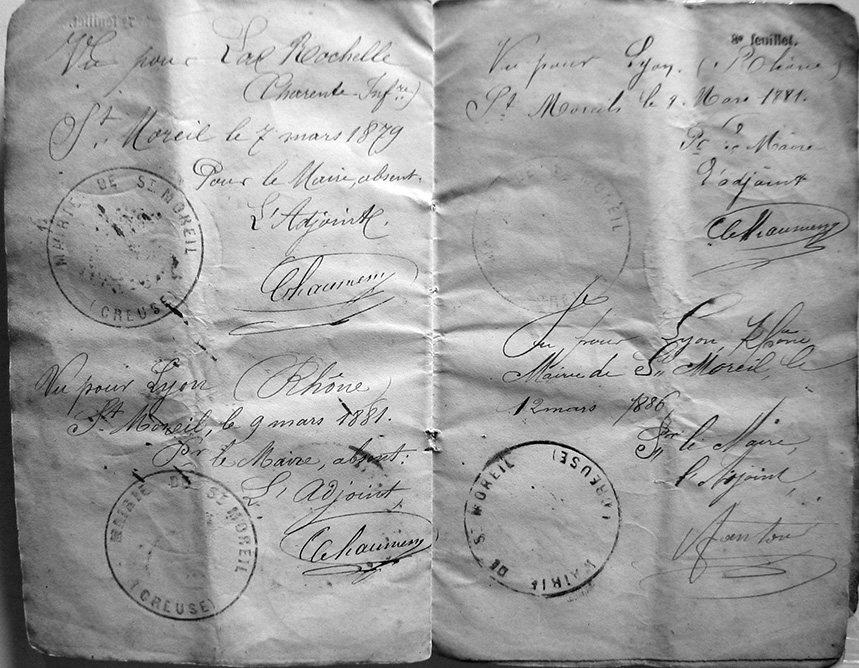 Vu pour La Rochelle
(Charente Infre)
St. Moreil le 7 mars 1879
Pour le Maire, absent.
L'Adjoint.
Chaumeny
MAIRIE DE ST MOREIL
(CREUSE)
Vu pour Lyon (Rhône)
St Moreil, le 9 mars 1881.
Pr le Maire, absent:
L'Adjoint,
Chaumeny
MAIRIE DE ST MOREIL
(CREUSE)
8e feuillet.
Vu pour Lyon. (Rhône)
St Moreil le 9 Mars 1881.
Pr le Maire
L'adjoint
Chaumeny
MAIRIE DE ST MOREIL
Vu pour Lyon Rhône
Mairie de St Moreil, le
12 mars 1886
Pr le Maire
l'Adjoint,
MAIRIE DE ST MOREIL
(CREUSE)